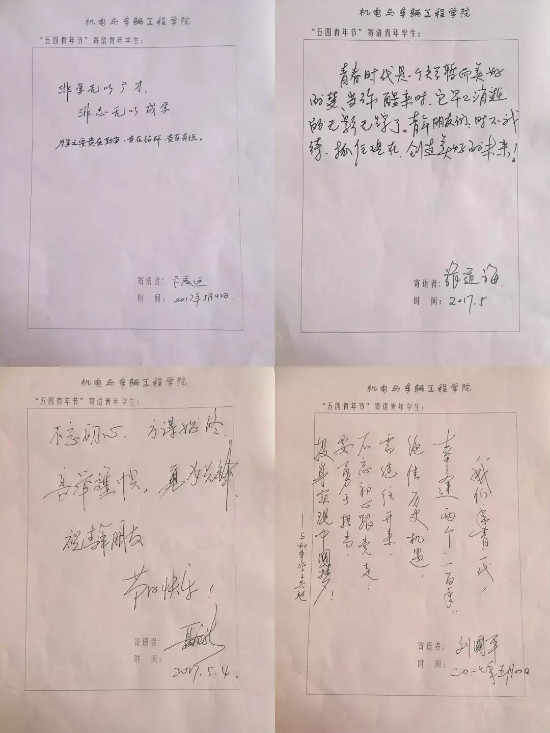 机电与车辆工程学院
“五四青年节”寄语青年学生：
非学无以广才，
非志无以成学
寄语者：
时 间：2017年5月4日
机电与车辆工程学院
“五四青年节”寄语青年学生：
青春时代是一个短暂而美好
的梦，当你醒来时，它早已消逝
的无影无踪了。青年朋友们，时不我
待，抓住现在，创造美好的未来！
寄语者：
时 间：2017.5
机电与车辆工程学院
“五四青年节”寄语青年学生：
不忘初心，方得始终
祝青年朋友
节日快乐！
寄语者：
时 间：
2017.5.4.
机电与车辆工程学院
“五四青年节”寄语青年学生：
我们这青一代，
幸逢两个一百年。
绝佳历史机遇，
需继往开来。
不忘初心跟党走，
要勇于担当。
投身实现中国梦！
寄语者：刘国平
时 间：二〇一七年五月四日